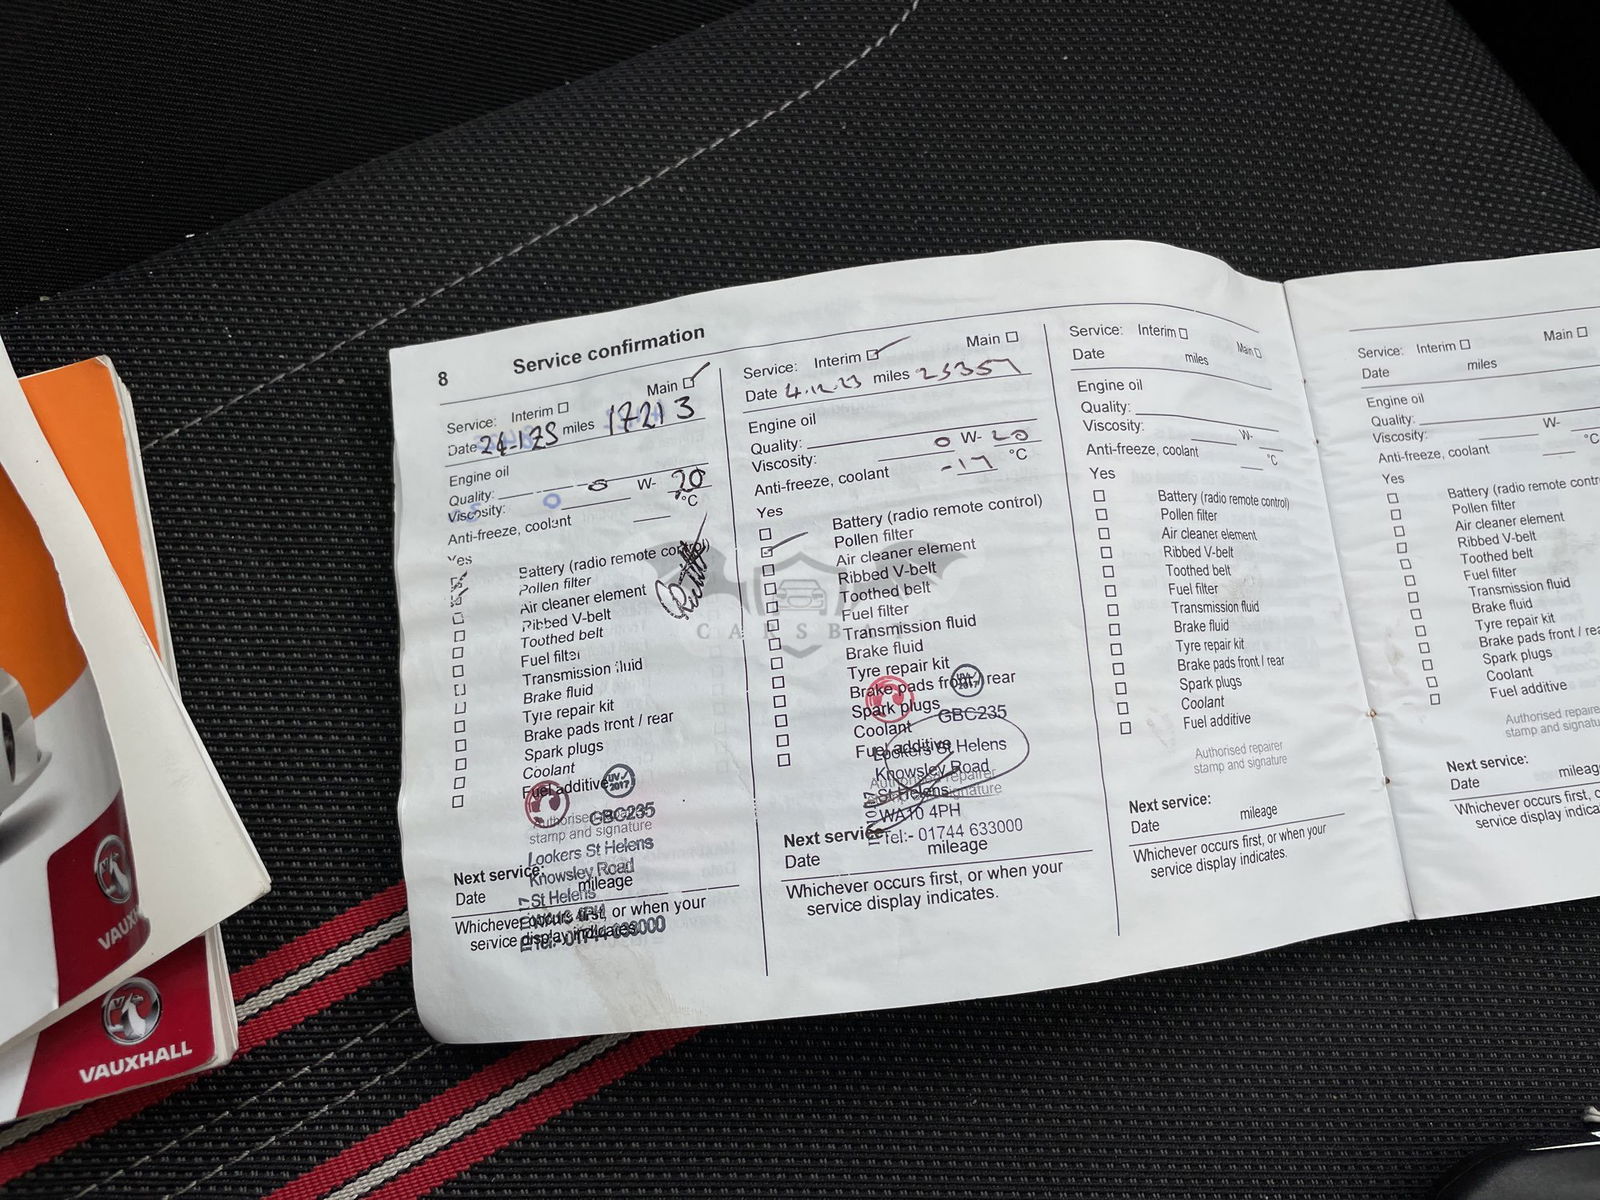 8 Service confirmation
Service: Interim Main
Date miles 17213
Engine oil
Quality:
Viscosity: 0 W- 20
Anti-freeze, coolant °C
Yes
Battery (radio remote control)
Pollen filter
Air cleaner element
Ribbed V-belt
Toothed belt
Fuel filter
Transmission fluid
Brake fluid
Tyre repair kit
Brake pads front / rear
Spark plugs
Coolant
Fuel additive
UV✓ 2017
GBC235
Authorised
stamp and signature
Lookers St Helens
Knowsley Road
St Helens
Tel:- 01744 633000
Next service:
Date mileage
Whichever occurs first, or when your
service display indicates.
Service: Interim Main
Date 4.12.23 miles
Engine oil
Quality:
Viscosity: 0 W- 20
Anti-freeze, coolant -17 °C
Yes
Battery (radio remote control)
Pollen filter
Air cleaner element
Ribbed V-belt
Toothed belt
Fuel filter
Transmission fluid
Brake fluid
Tyre repair kit
Brake pads front / rear
Spark plugs
Coolant
Fuel additive
2017
GBC235
Authorised repairer
stamp and signature
Lookers St Helens
Knowsley Road
St Helens
WA10 4PH
Tel:- 01744 633000
Next service:
Date mileage
Whichever occurs first, or when your
service display indicates.
Service: Interim Main
Date miles
Engine oil
Quality:
Viscosity: W-
Anti-freeze, coolant °C
Yes
Battery (radio remote control)
Pollen filter
Air cleaner element
Ribbed V-belt
Toothed belt
Fuel filter
Transmission fluid
Brake fluid
Tyre repair kit
Brake pads front / rear
Spark plugs
Coolant
Fuel additive
Authorised repairer
stamp and signature
Next service:
Date mileage
Whichever occurs first, or when your
service display indicates.
Service: Interim Main
Date miles
Engine oil
Quality:
Viscosity: W-
Anti-freeze, coolant °C
Yes
Battery (radio remote contro
Pollen filter
Air cleaner element
Ribbed V-belt
Toothed belt
Fuel filter
Transmission fluid
Brake fluid
Tyre repair kit
Brake pads front / rea
Spark plugs
Coolant
Fuel additive
Authorised repaire
stamp and signatu
Next service:
Date mileag
Whichever occurs first, o
service display indica
CARSB
VAUXH
VAUXHALL